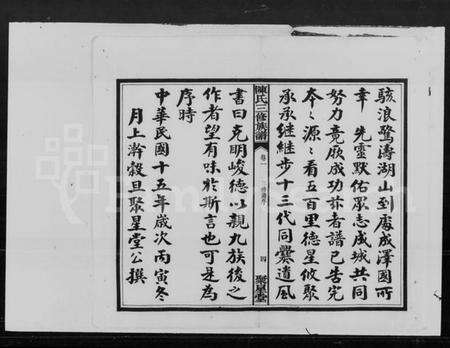 駭浪驚濤湖山到處成澤國所
幸　先靈默佑眾志成城共同
努力竟厥成功訴者譜已告完
本本源源看五百里德星攸聚
承承繼繼步十三代同爨遺風
陳氏三修族譜
卷一
四
聚星堂
書曰克明峻德以親九族後之
作者望有味於斯言也可是為
序時
中華民國十五年歲次丙寅冬
月上澣穀旦聚星堂公撰